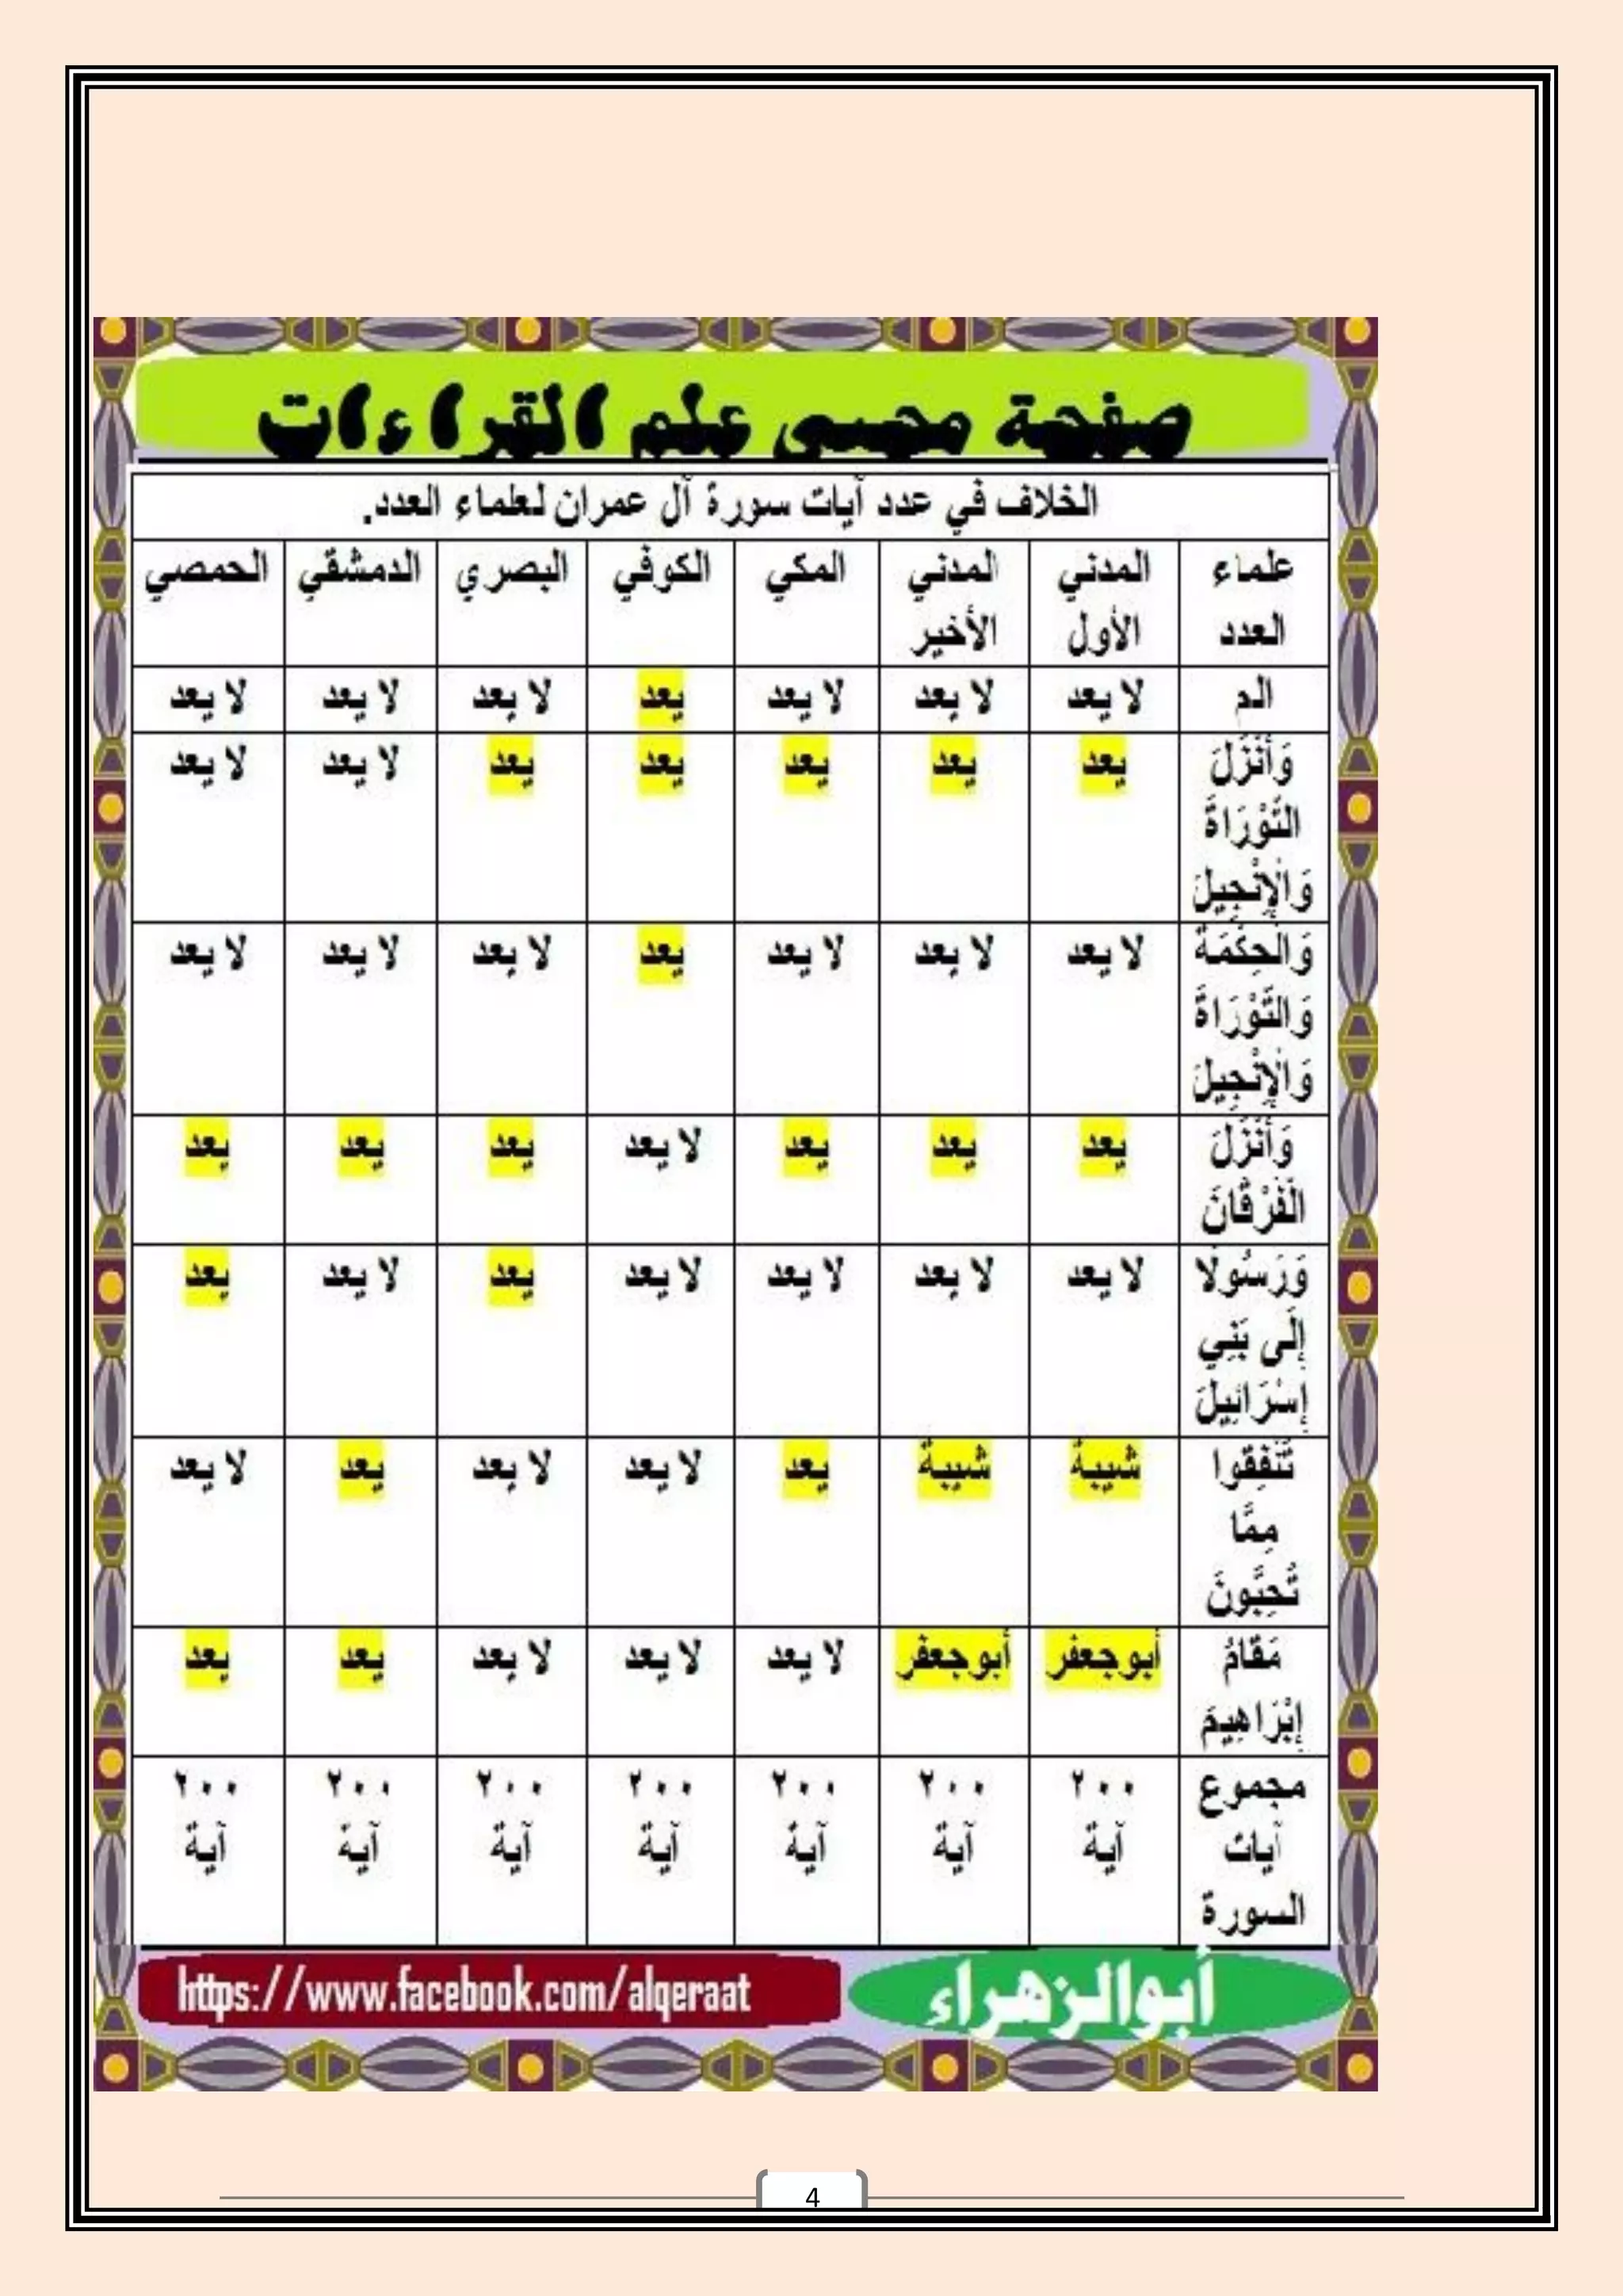 صفحة محبى علم القراءات
الخلاف في عدد آيات سورة آل عمران لعلماء العدد.
علماء العدد المدني الأول المدني الأخير المكي الكوفي البصري الدمشقي الحمصي
الم لا يعد لا يعد لا يعد يعد لا يعد لا يعد لا يعد
وَأَنْزَلَ التَّوْرَاةَ وَالْإِنْجِيلَ يعد يعد يعد يعد يعد لا يعد لا يعد
وَالْحِكْمَةَ وَالتَّوْرَاةَ وَالْإِنْجِيلَ لا يعد لا يعد لا يعد يعد لا يعد لا يعد لا يعد
وَأَنْزَلَ الْفُرْقَانَ يعد يعد يعد لا يعد يعد يعد يعد
وَرَسُولًا إِلَى بَنِي إِسْرَائِيلَ لا يعد لا يعد لا يعد لا يعد يعد لا يعد يعد
تُنْفِقُوا مِمَّا تُحِبُّونَ شيبة شيبة يعد لا يعد لا يعد يعد لا يعد
مَقَامُ إِبْرَاهِيمَ أبوجعفر أبوجعفر لا يعد لا يعد لا يعد يعد يعد
مجموع آيات السورة ٢٠٠ آية ٢٠٠ آية ٢٠٠ آية ٢٠٠ آية ٢٠٠ آية ٢٠٠ آية ٢٠٠ آية
أبوالزهراء https://www.facebook.com/alqeraat
4